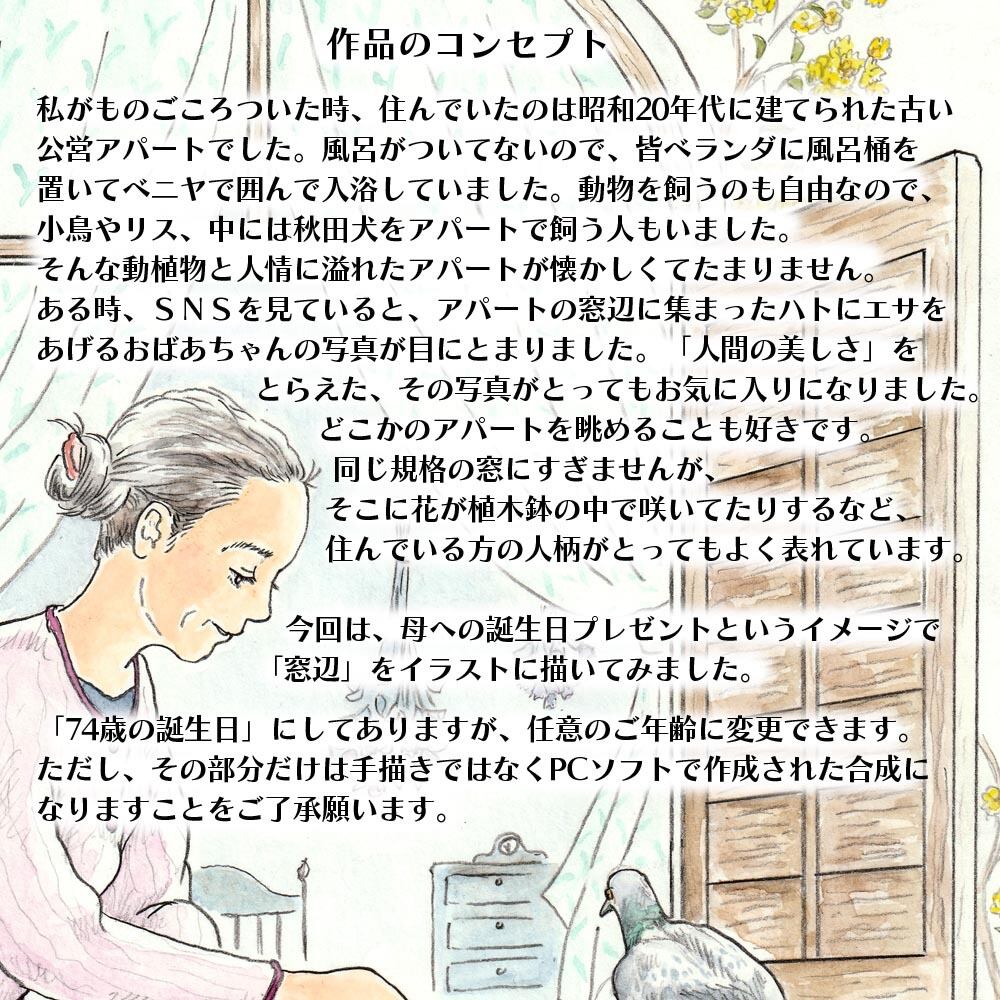 作品のコンセプト
私がものごころついた時、住んでいたのは昭和20年代に建てられた古い
公営アパートでした。風呂がついてないので、皆ベランダに風呂桶を
置いてベニヤで囲んで入浴していました。動物を飼うのも自由なので、
小鳥やリス、中には秋田犬をアパートで飼う人もいました。
そんな動植物と人情に溢れたアパートが懐かしくてたまりません。
ある時、ＳＮＳを見ていると、アパートの窓辺に集まったハトにエサを
あげるおばあちゃんの写真が目にとまりました。「人間の美しさ」を
とらえた、その写真がとってもお気に入りになりました。
どこかのアパートを眺めることも好きです。
同じ規格の窓にすぎませんが、
そこに花が植木鉢の中で咲いてたりするなど、
住んでいる方の人柄がとってもよく表れています。
今回は、母への誕生日プレゼントというイメージで
「窓辺」をイラストに描いてみました。
「74歳の誕生日」にしてありますが、任意のご年齢に変更できます。
ただし、その部分だけは手描きではなくPCソフトで作成された合成に
なりますことをご了承願います。